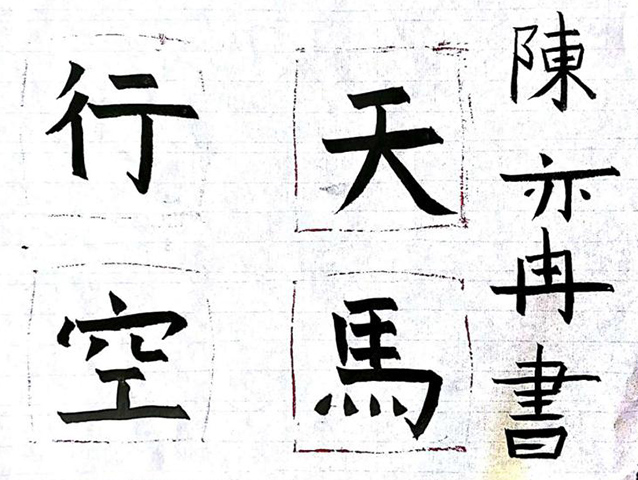 陳亦冉書
天馬
行空